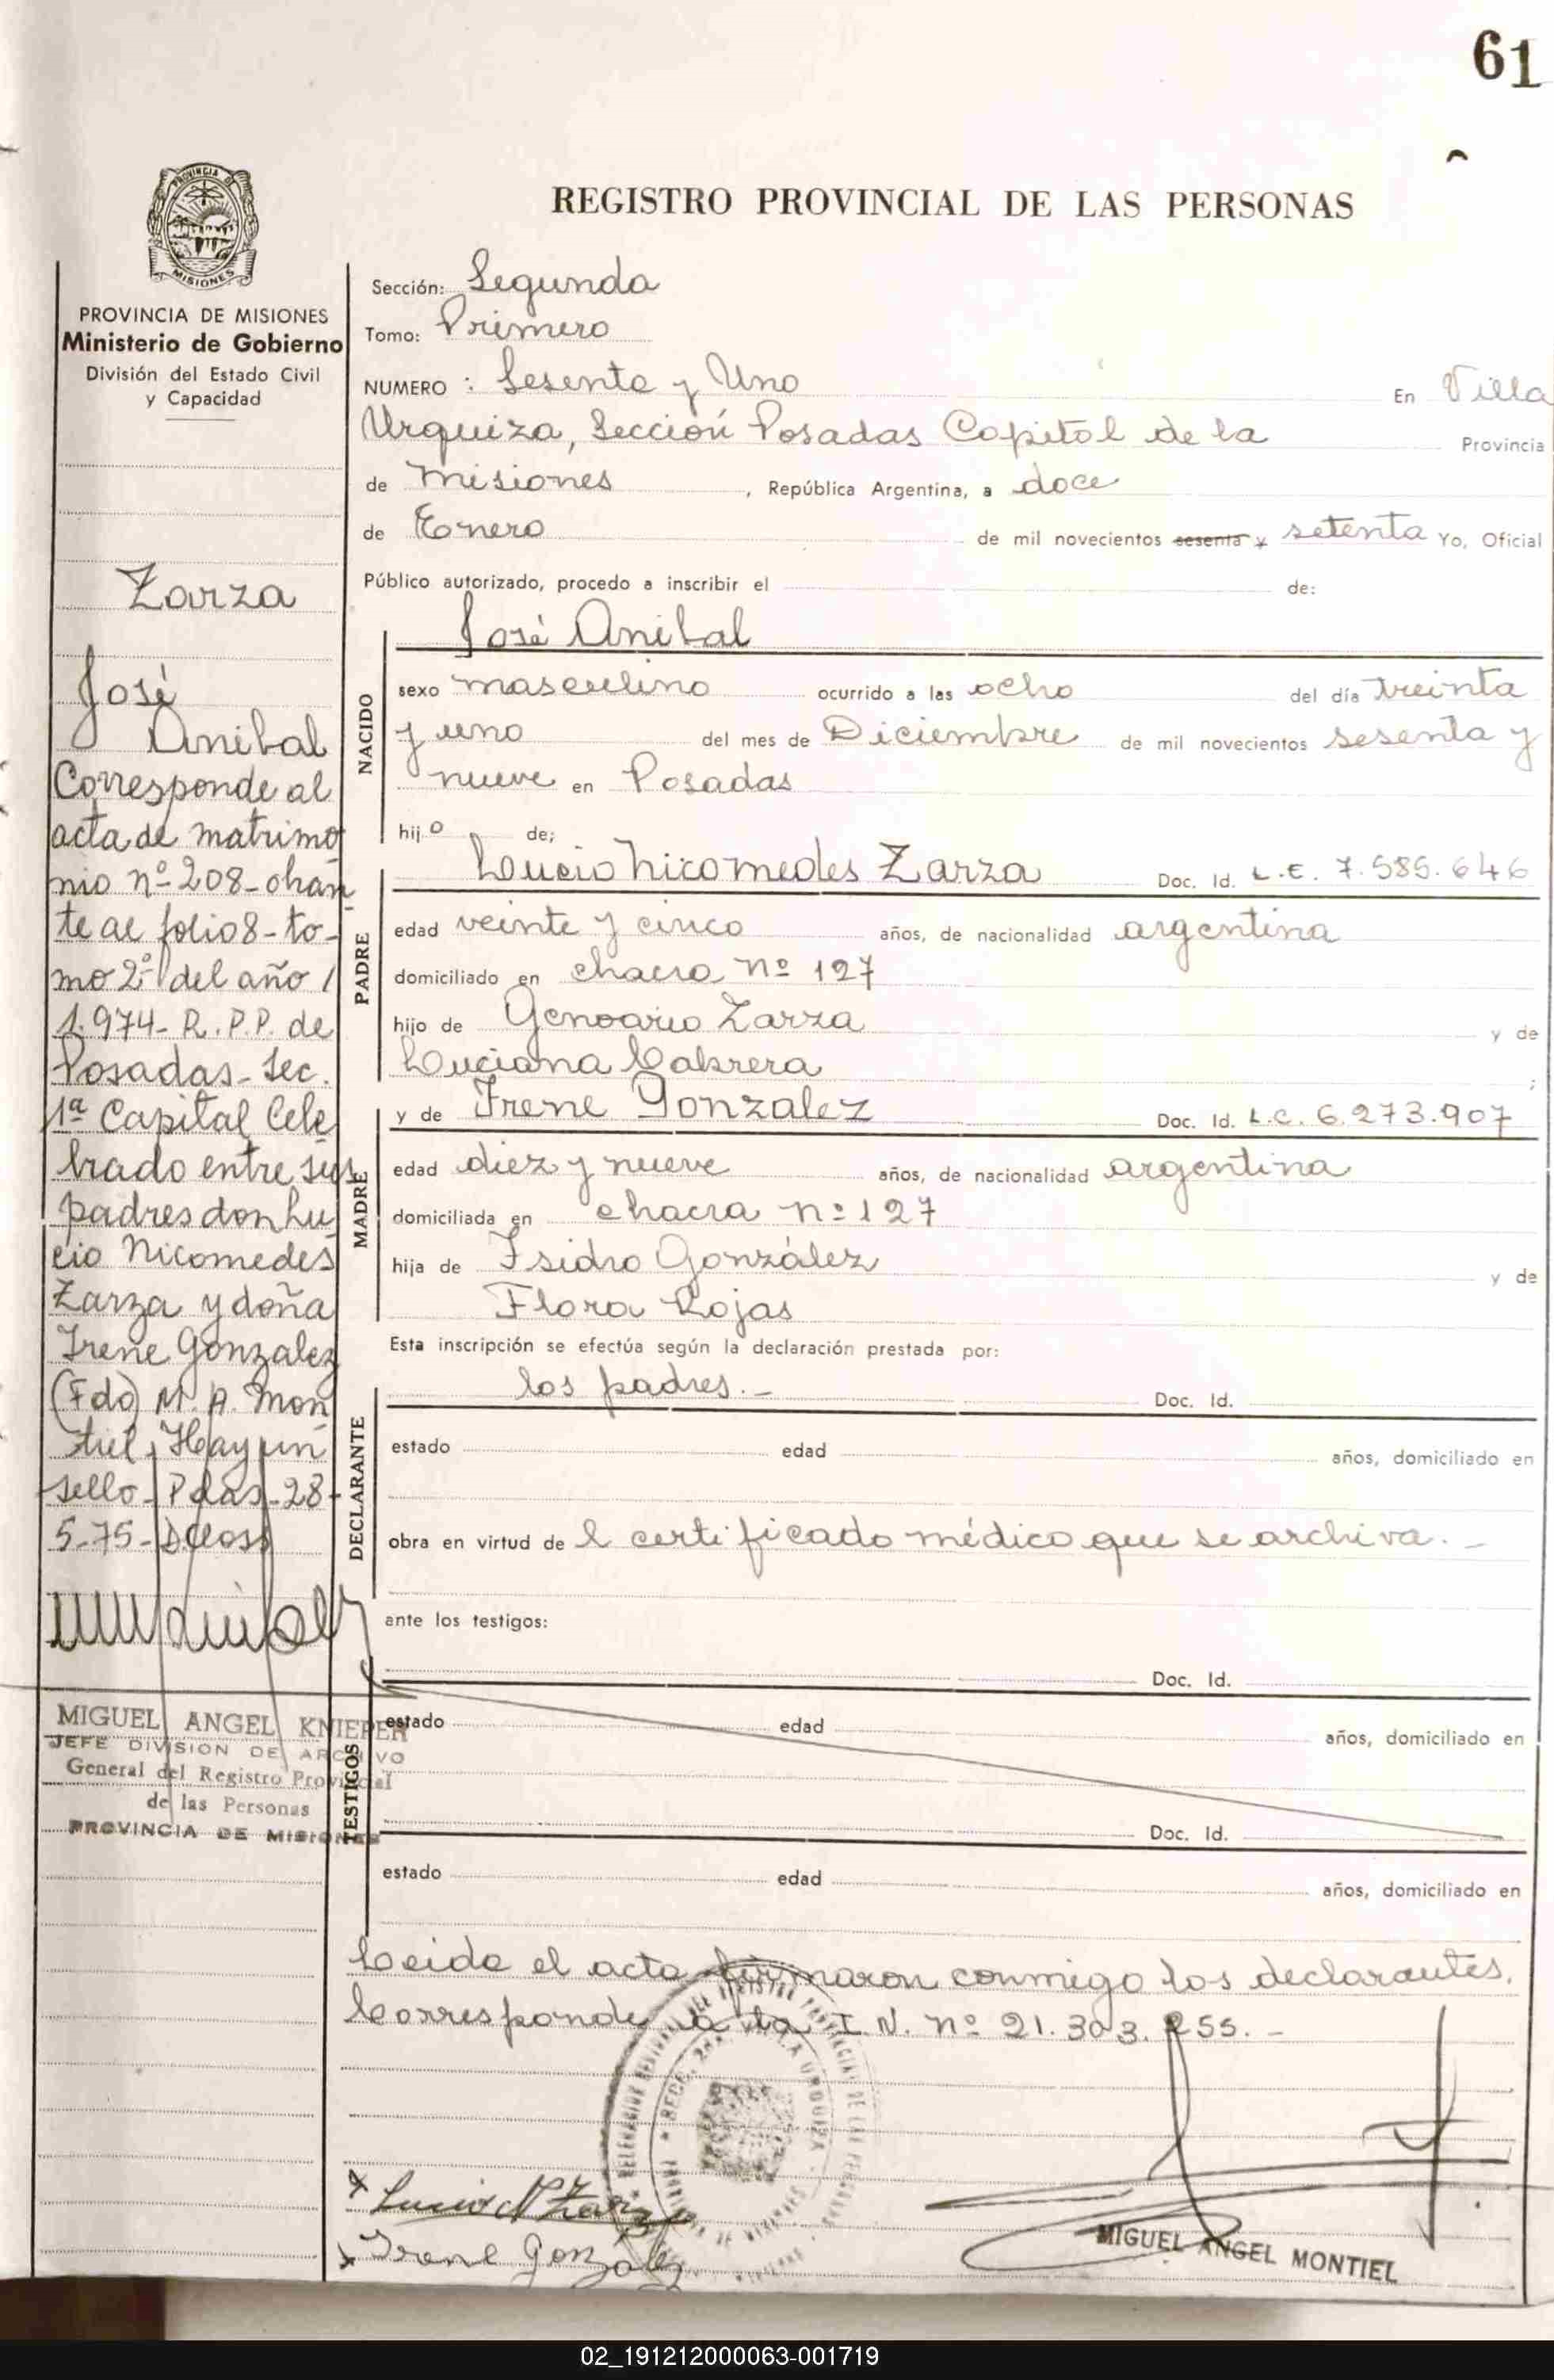 61
REGISTRO PROVINCIAL DE LAS PERSONAS
PROVINCIA DE
MISIONES
PROVINCIA DE MISIONES
Ministerio de Gobierno
División del Estado Civil
y Capacidad
Zarza
José
Anibal
Corresponde al
acta de matrimo
nio nº 208-obran
te al folio 8-to-
mo 2º del año /
1.974- R.P.P. de
Posadas- Sec.
1ª Capital Cele
brado entre sus
padres don Lu
cio Nicomedes
Zarza y doña
Irene Gonzalez
(Fdo) M. A. Mon
tiel, Hay un
sello- Pdas-28-
5-75-
MIGUEL ANGEL KNIEPER
JEFE DIVISION DE ARCHIVO
General del Registro Provincial
de las Personas
PROVINCIA DE MISIONES
Sección: Segunda
Tomo: Primero
NUMERO : Sesenta y Uno En Villa
Urquiza, Sección Posadas Capital de la Provincia
de Misiones , República Argentina, a doce
de Enero de mil novecientos sesenta y setenta Yo, Oficial
Público autorizado, procedo a inscribir el de:
NACIDO
José Anibal
sexo masculino ocurrido a las ocho del día treinta
y uno del mes de Diciembre de mil novecientos sesenta y
nueve en Posadas
hijo de;
PADRE
Lucio Nicomedes Zarza Doc. Id. L.E. 7.585.646
edad veinte y cinco años, de nacionalidad argentina
domiciliado en chacra nº 127
hijo de Genoario Zarza y de
Luciana Cabrera ;
MADRE
y de Irene Gonzalez Doc. Id. L.C. 6.273.907
edad diez y nueve años, de nacionalidad argentina
domiciliada en chacra nº 127
hija de Isidro González y de
Flora Rojas
Esta inscripción se efectúa según la declaración prestada por:
DECLARANTE
los padres.- Doc. Id.
estado edad años, domiciliado en
obra en virtud de l certificado médico que se archiva.-
ante los testigos:
TESTIGOS
Doc. Id.
estado edad años, domiciliado en
Doc. Id.
estado edad años, domiciliado en
Leida el acta firmaron conmigo los declarantes.
Corresponde a la I.N. nº 21.303.255.-
Lucio N Zarza
Irene González
MIGUEL ANGEL MONTIEL
02_191212000063-001719